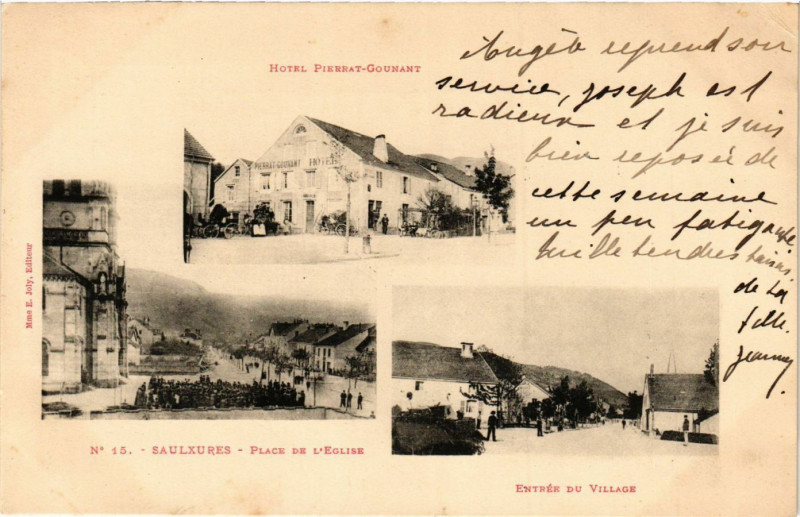 HOTEL PIERRAT-GOUNANT
Angèle reprend son
service, joseph est
radieux et je suis
bien reposée de
cette semaine
un peu fatigante
mille tendres baisers
de ta
fille.
Jeanne
PIERRAT-GOUNANT HOTEL
Mme E. Joly, Editeur
N° 15. - SAULXURES - PLACE DE L'EGLISE
ENTRÉE DU VILLAGE